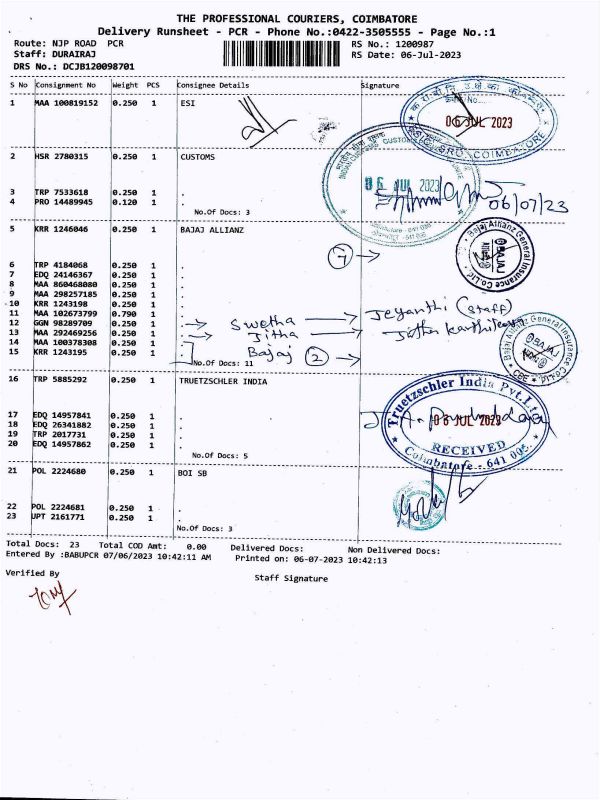 THE PROFESSIONAL COURIERS, COIMBATORE
Delivery Runsheet - PCR - Phone No.:0422-3505555 - Page No.:1
Route: NJP ROAD PCR RS No.: 1200987
Staff: DURAIRAJ RS Date: 06-Jul-2023
DRS No.: DCJB120098701
S No Consignment No Weight PCS Consignee Details Signature
1 MAA 100819152 0.250 1 ESI
06 JUL 2023
COIMBATORE
2 HSR 2780315 0.250 1 CUSTOMS
CUSTOMS
06 JUL 2023
3 TRP 7533618 0.250 1 .
4 PRO 14489945 0.120 1 . 06/07/23
No.Of Docs: 3
5 KRR 1246046 0.250 1 BAJAJ ALLIANZ
Bajaj Allianz General Insurance Co.Ltd.
BAJAJ
7 →
6 TRP 4184068 0.250 1 .
7 EDQ 24146367 0.250 1 .
8 MAA 860468080 0.250 1 .
9 MAA 298257185 0.250 1 .
10 KRR 1243198 0.250 1 .
11 MAA 102673799 0.790 1 .
12 GGN 98289709 0.250 1 . → Swetha → Jeyanthi (staff)
13 MAA 292469256 0.250 1 . → Jitha →
14 MAA 100378308 0.250 1 .
15 KRR 1243195 0.250 1 . Bajaj 2 →
No.Of Docs: 11
Bajaj Allianz General Insurance Co.Ltd. CBE
BAJAJ
16 TRP 5885292 0.250 1 TRUETZSCHLER INDIA
Truetzschler India Pvt.Ltd
06 JUL 2023
RECEIVED
Coimbatore - 641 005.
17 EDQ 14957841 0.250 1 .
18 EDQ 26341882 0.250 1 .
19 TRP 2017731 0.250 1 .
20 EDQ 14957862 0.250 1 .
No.Of Docs: 5
21 POL 2224680 0.250 1 BOI SB
22 POL 2224681 0.250 1 .
23 UPT 2161771 0.250 1 .
No.Of Docs: 3
Total Docs: 23 Total COD Amt: 0.00 Delivered Docs: Non Delivered Docs:
Entered By :BABUPCR 07/06/2023 10:42:11 AM Printed on: 06-07-2023 10:42:13
Verified By Staff Signature